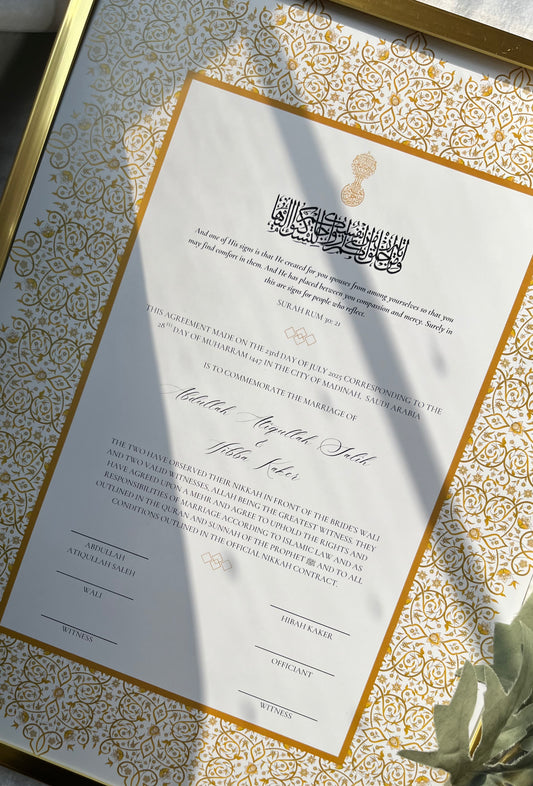 ومن آياته أن خلق لكم من أنفسكم أزواجا لتسكنوا إليها
And one of His signs is that He created for you spouses from among yourselves so that you
may find comfort in them. And He has placed between you compassion and mercy. Surely in
this are signs for people who reflect.
SURAH RUM 30: 21
THIS AGREEMENT MADE ON THE 23RD DAY OF JULY 2025 CORRESPONDING TO THE
28TH DAY OF MUHARRAM 1447 IN THE CITY OF MADINAH, SAUDI ARABIA
IS TO COMMEMORATE THE MARRIAGE OF
Abdullah Atiqullah Salih
&
Hibba Kaker
THE TWO HAVE OBSERVED THEIR NIKKAH IN FRONT OF THE BRIDE'S WALI
AND TWO VALID WITNESSES, ALLAH BEING THE GREATEST WITNESS. THEY
HAVE AGREED UPON A MEHR AND AGREE TO UPHOLD THE RIGHTS AND
RESPONSIBILITIES OF MARRIAGE ACCORDING TO ISLAMIC LAW AND AS
OUTLINED IN THE QURAN AND SUNNAH OF THE PROPHET ﷺ AND TO ALL
CONDITIONS OUTLINED IN THE OFFICIAL NIKKAH CONTRACT.
ABDULLAH
ATIQULLAH SALEH
HIBAH KAKER
WALI
OFFICIANT
WITNESS
WITNESS